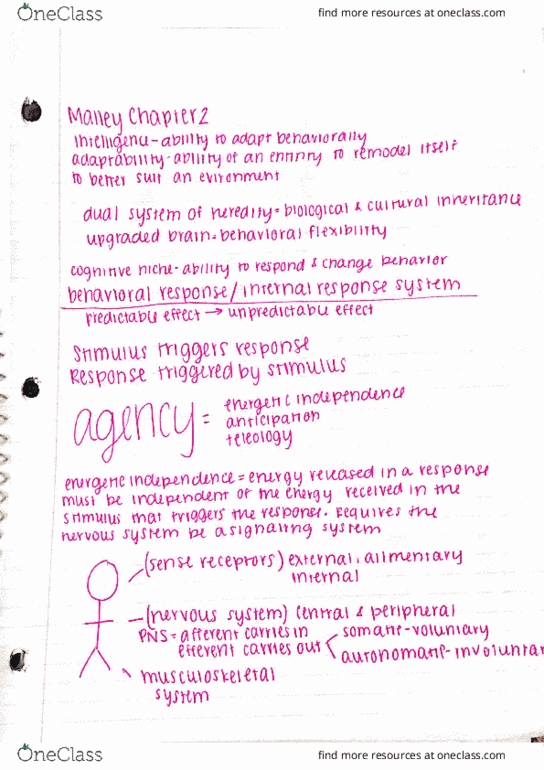 OneClass
find more resources at oneclass.com
Malley Chapter 2
Intelligence - ability to adapt behaviorally
adaptability - ability of an entity to remodel itself
to better suit an evironment
dual system of heredity = biological & cultural inheritance
upgraded brain = behavioral flexibility
cognitive niche - ability to respond & change behavior
behavioral response / internal response system
predictable effect → unpredictable effect
Stimulus triggers response
Response triggered by stimulus
agency =
energetic independence
anticipation
teleology
energetic independence = energy released in a response
must be independent of the energy received in the
stimulus that triggers the response. Requires the
nervous system be a signaling system
(sense receptors) external, alimentary
internal
(nervous system) central & peripheral
PNS = afferent carries in
efferent carries out
somatic - voluntary
autonomatic - involuntar
musculoskeletal
system
OneClass
find more resources at oneclass.com